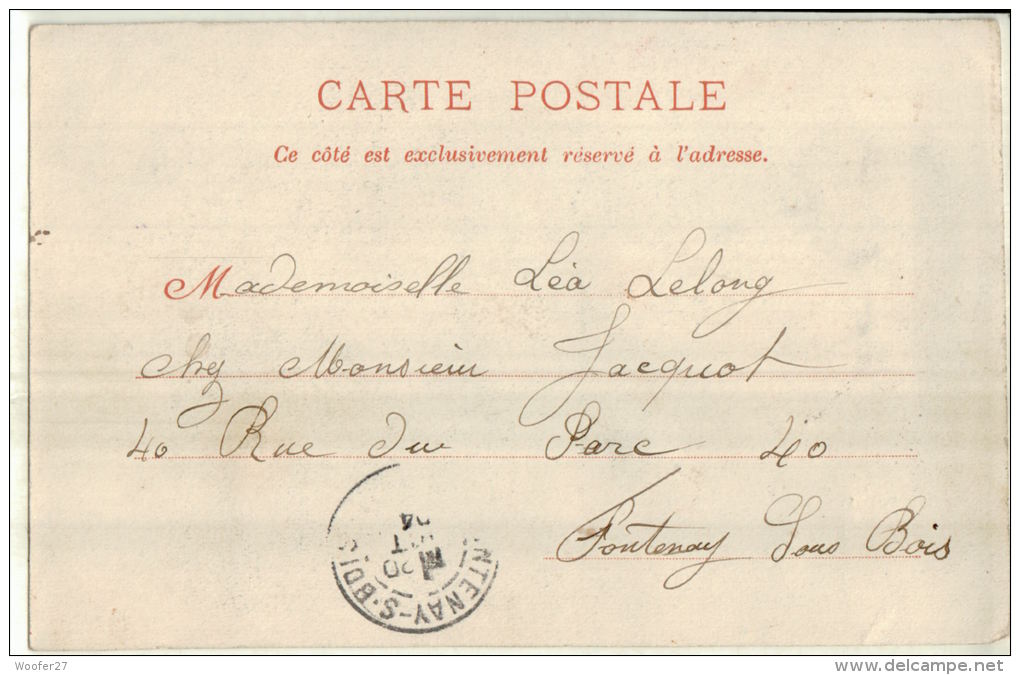 CARTE POSTALE
Ce côté est exclusivement réservé à l'adresse.
Mademoiselle Léa Lelong
chez Monsieur Jacquot
40 Rue du Parc 40
Fontenay Sous Bois
NTENAY-S-BOIS
20
04
Woofer27
www.delcampe.net